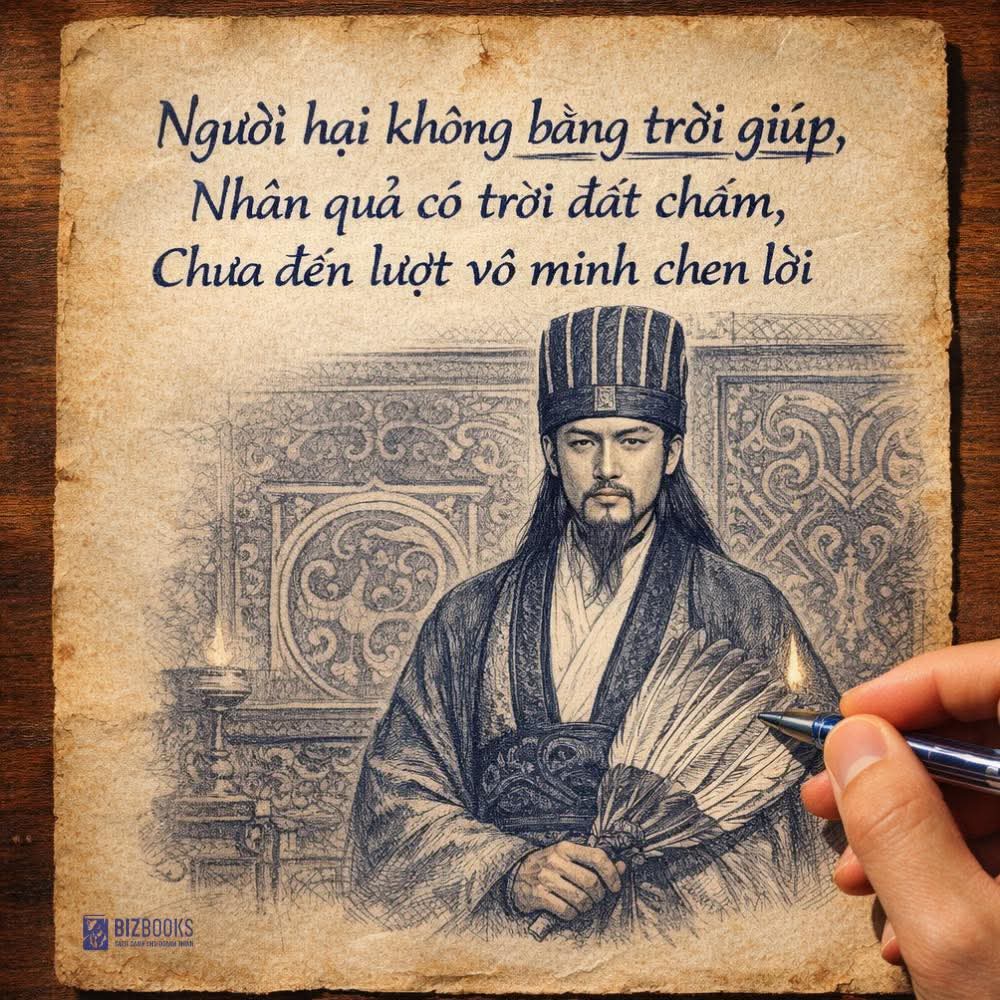 Người hại không bằng trời giúp,
Nhân quả có trời đất chấm,
Chưa đến lượt vô minh chen lời
BIZBOOKS